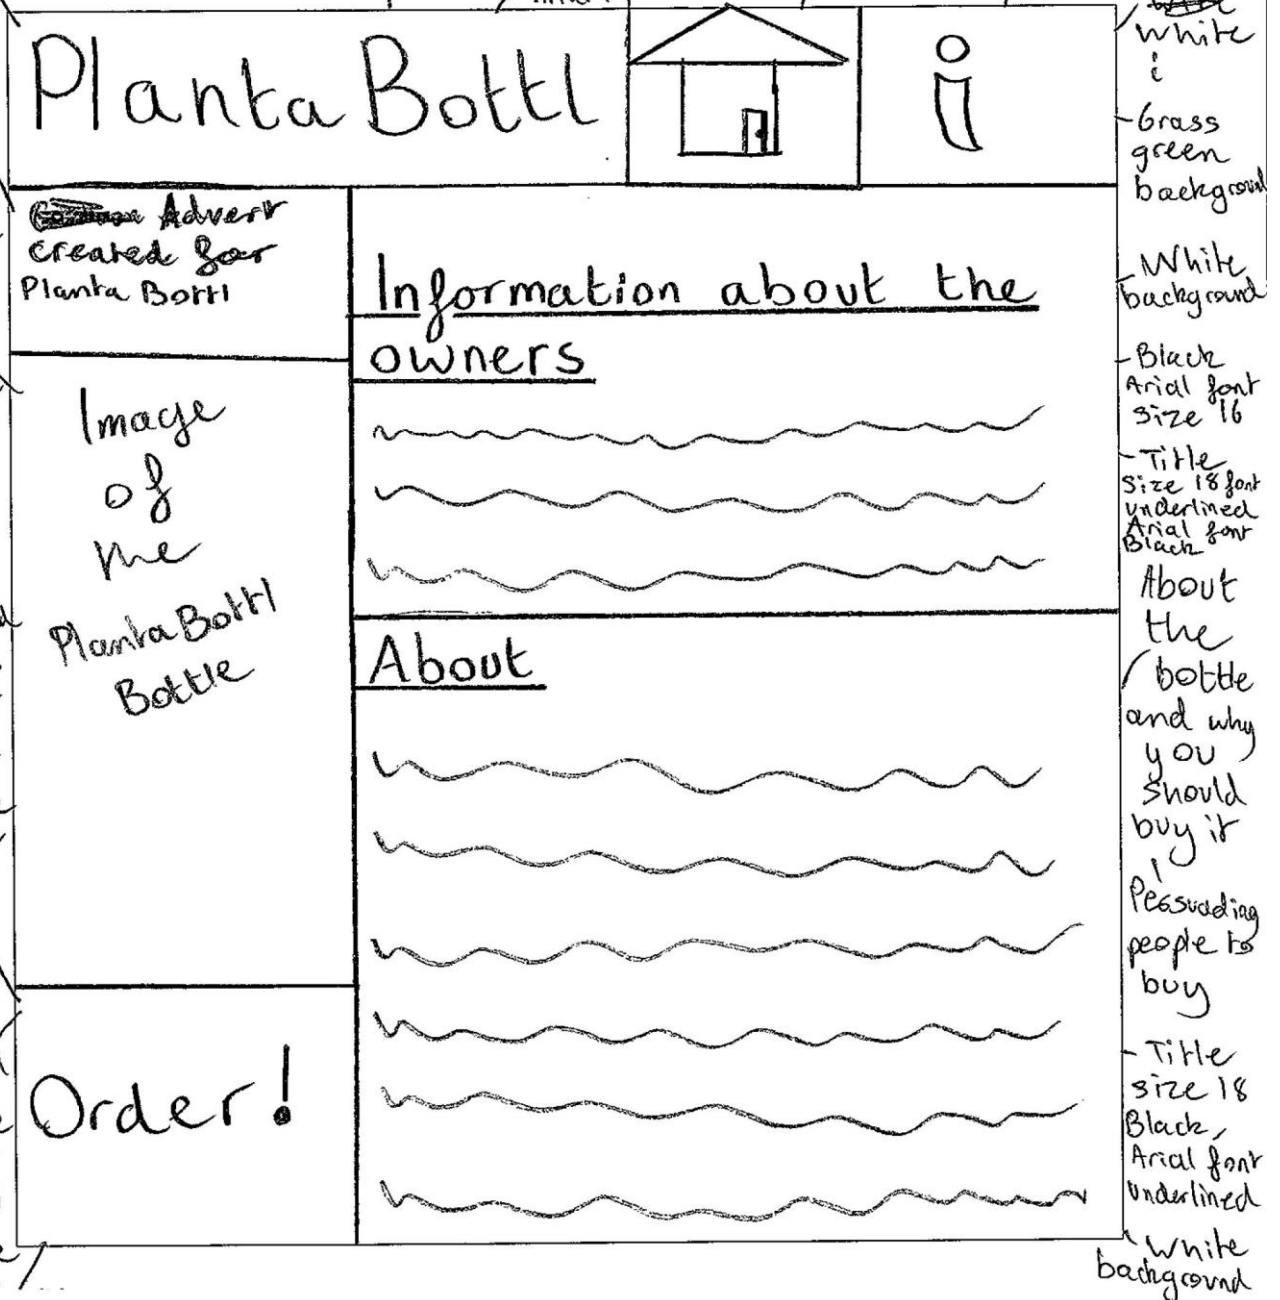 PlantaBottl
i
Advert
created for
Planta Bottl
Image
of
the
PlantaBottl
Bottle
Order!
Information about the
owners
About
White
i
-Grass
green
background
White
background
-Black
Arial font
Size 16
-Title
Size 18 font
underlined
Arial font
Black
About
the
bottle
and why
you
should
buy it
Pessuading
people to
buy
-Title
size 18
Black,
Arial font
underlined
White
background